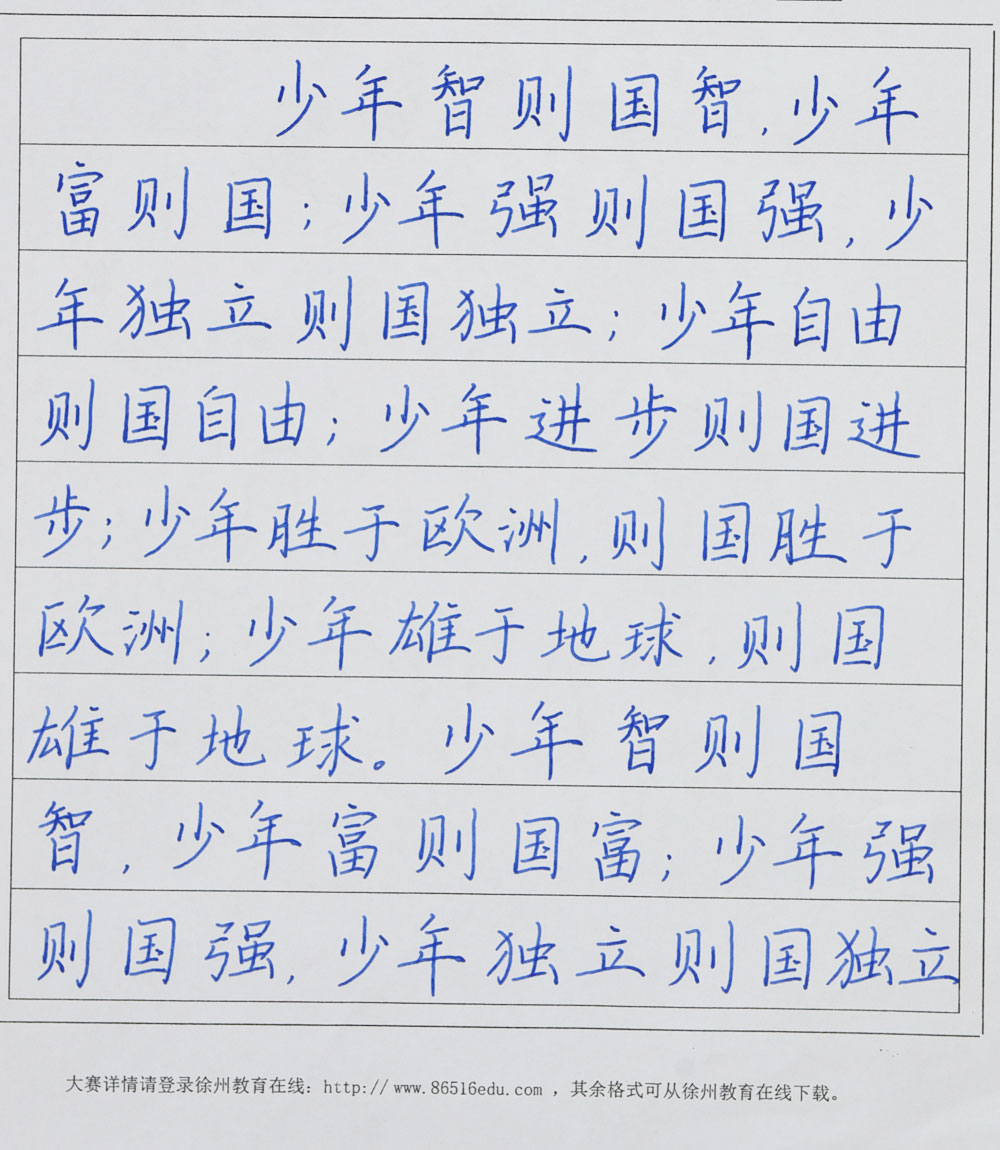 少年智则国智,少年
富则国;少年强则国强,少
年独立则国独立;少年自由
则国自由;少年进步则国进
步;少年胜于欧洲,则国胜于
欧洲;少年雄于地球,则国
雄于地球。少年智则国
智,少年富则国富;少年强
则国强,少年独立则国独立
大赛详情请登录徐州教育在线：http://www.86516edu.com ，其余格式可从徐州教育在线下载。